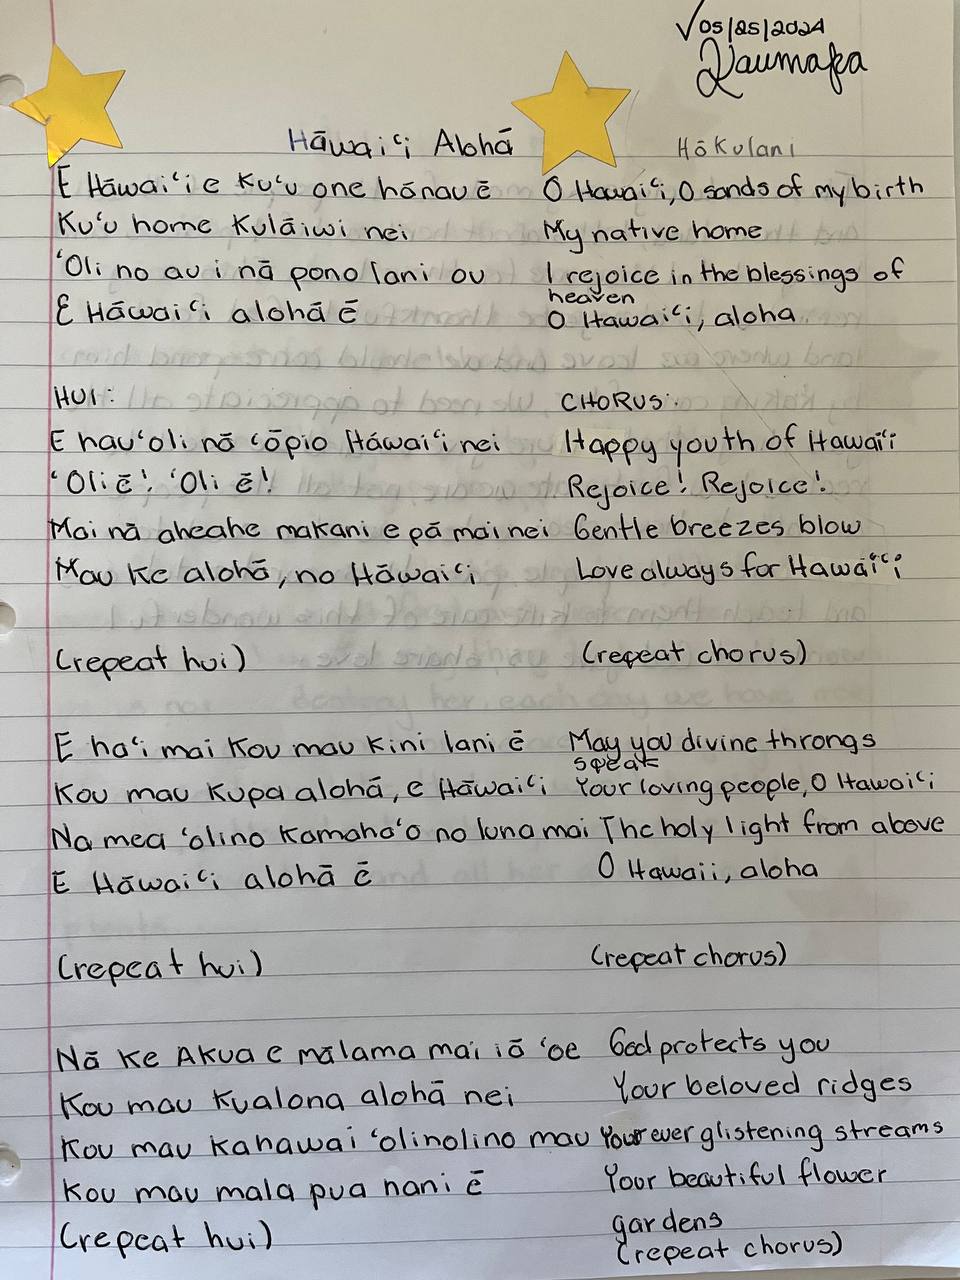 √05/25/2024
Kaumaka
Hāwaiʻi Alohā
Hōkulani
E Hāwaiʻi e Kuʻu one hānau ē
O Hawaiʻi, O sands of my birth
Kuʻu home Kulāiwi nei
My native home
ʻOli no au i nā pono lani ou
I rejoice in the blessings of
heaven
E Hāwaiʻi alohā ē
O Hawaiʻi, aloha
HUI:
CHORUS:
E hauʻoli nā ʻōpio Háwaiʻi nei
Happy youth of Hawaiʻi
ʻOli ē! ʻOli ē!
Rejoice! Rejoice!
Mai nā aheahe makani e pā mai nei
Gentle breezes blow
Mau Ke alohā, no Hāwaiʻi
Love always for Hawaiʻi
(repeat hui)
(repeat chorus)
E haʻi mai Kou mau Kini lani ē
May you divine throngs
speak
Kou mau Kupa alohā, e Hāwaiʻi
Your loving people, O Hawaiʻi
Na mea ʻolino Kamahaʻo no luna mai
The holy light from above
E Hāwaiʻi alohā ē
O Hawaii, aloha
(repeat hui)
(repeat chorus)
Nā Ke Akua e mālama mai iā ʻoe
God protects you
Kou mau Kualona alohā nei
Your beloved ridges
Kou mau Kahawai ʻolinolino mau
Your ever glistening streams
Kou mau mala pua nani ē
Your beautiful flower
gardens
(repeat hui)
(repeat chorus)